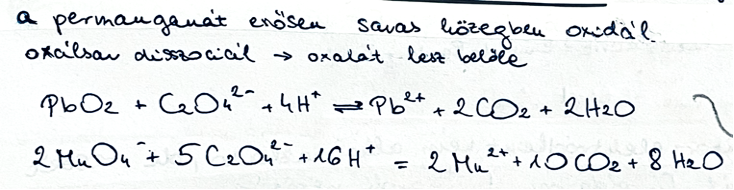 a permanganát erősen savas közegben oxidál.
oxálsav disszociál → oxalát lesz belőle
PbO2 + C2O4²⁻ + 4H⁺ ⇌ Pb²⁺ + 2CO2 + 2H2O
2MnO4⁻ + 5C2O4²⁻ + 16H⁺ = 2Mn²⁺ + 10CO2 + 8H2O